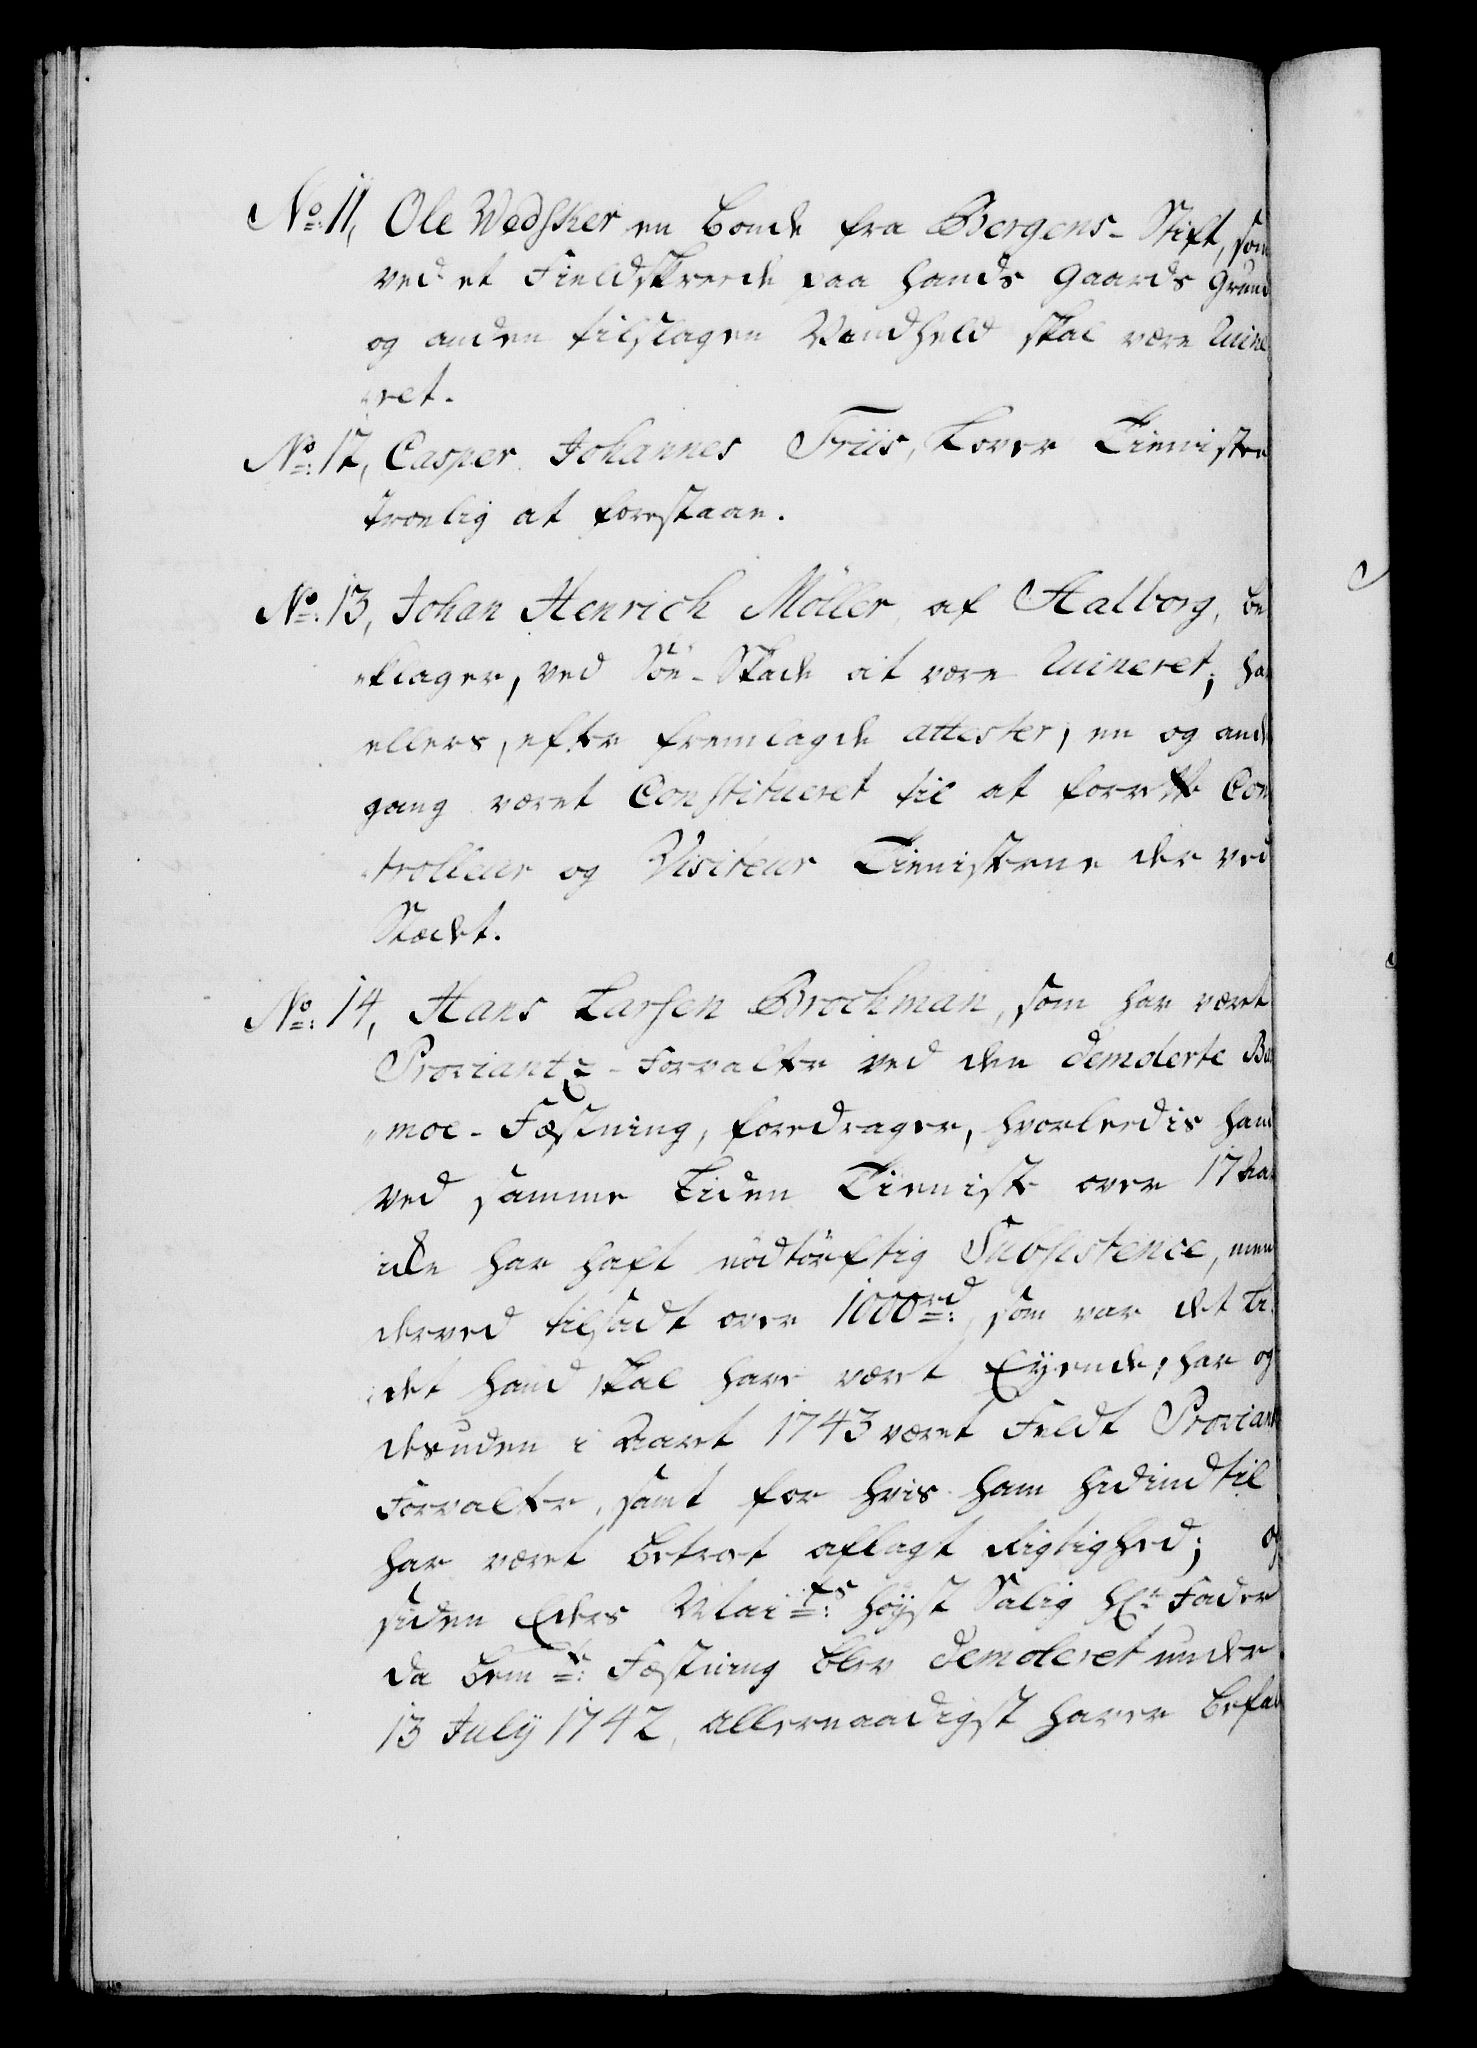 No: 11, Ole Wedsker en bonde fra Bergens-Stift, som
ved et Fieldskreede paa hands Gaards Grund
og anden tilslagen Vandheld skal være Ruine
ret.
No: 12, Casper Johannes Friis, Lover Tieniste
troelig at forestaae.
No: 13, Johan Henrich Möller, af Aalborg, be
klager, ved Söe-Skade at være Ruineret; har
ellers, efter fremlagde attester, en og anden
gang været Constitueret til at forrette Con
trolleur og Visiteur Tienisterne der ved
Stædet.
No: 14, Hans Larsen Brochman, som har været
Proviantz-Forvalter ved den demolerte
moe-Fæstning, foredrager, hvorleedis hand
ved samme Liden Tieniste over 17 Aar
icke har haft nödtörftig Subsistence, men
derved tilsadt over 1000rd: som var det Li
det hand skal have været Eyende, har og
desuden i Aaret 1743 været Feldt Proviant
Forvalter, samt for hvis ham hidindtil
har været betroet aflagt Rigtighed; og
siden Eders Maits: höyst Salig Hr: Fader
da bemte: Fæstning blev demoleret under
13 July 1742, allernaadigst haver befal